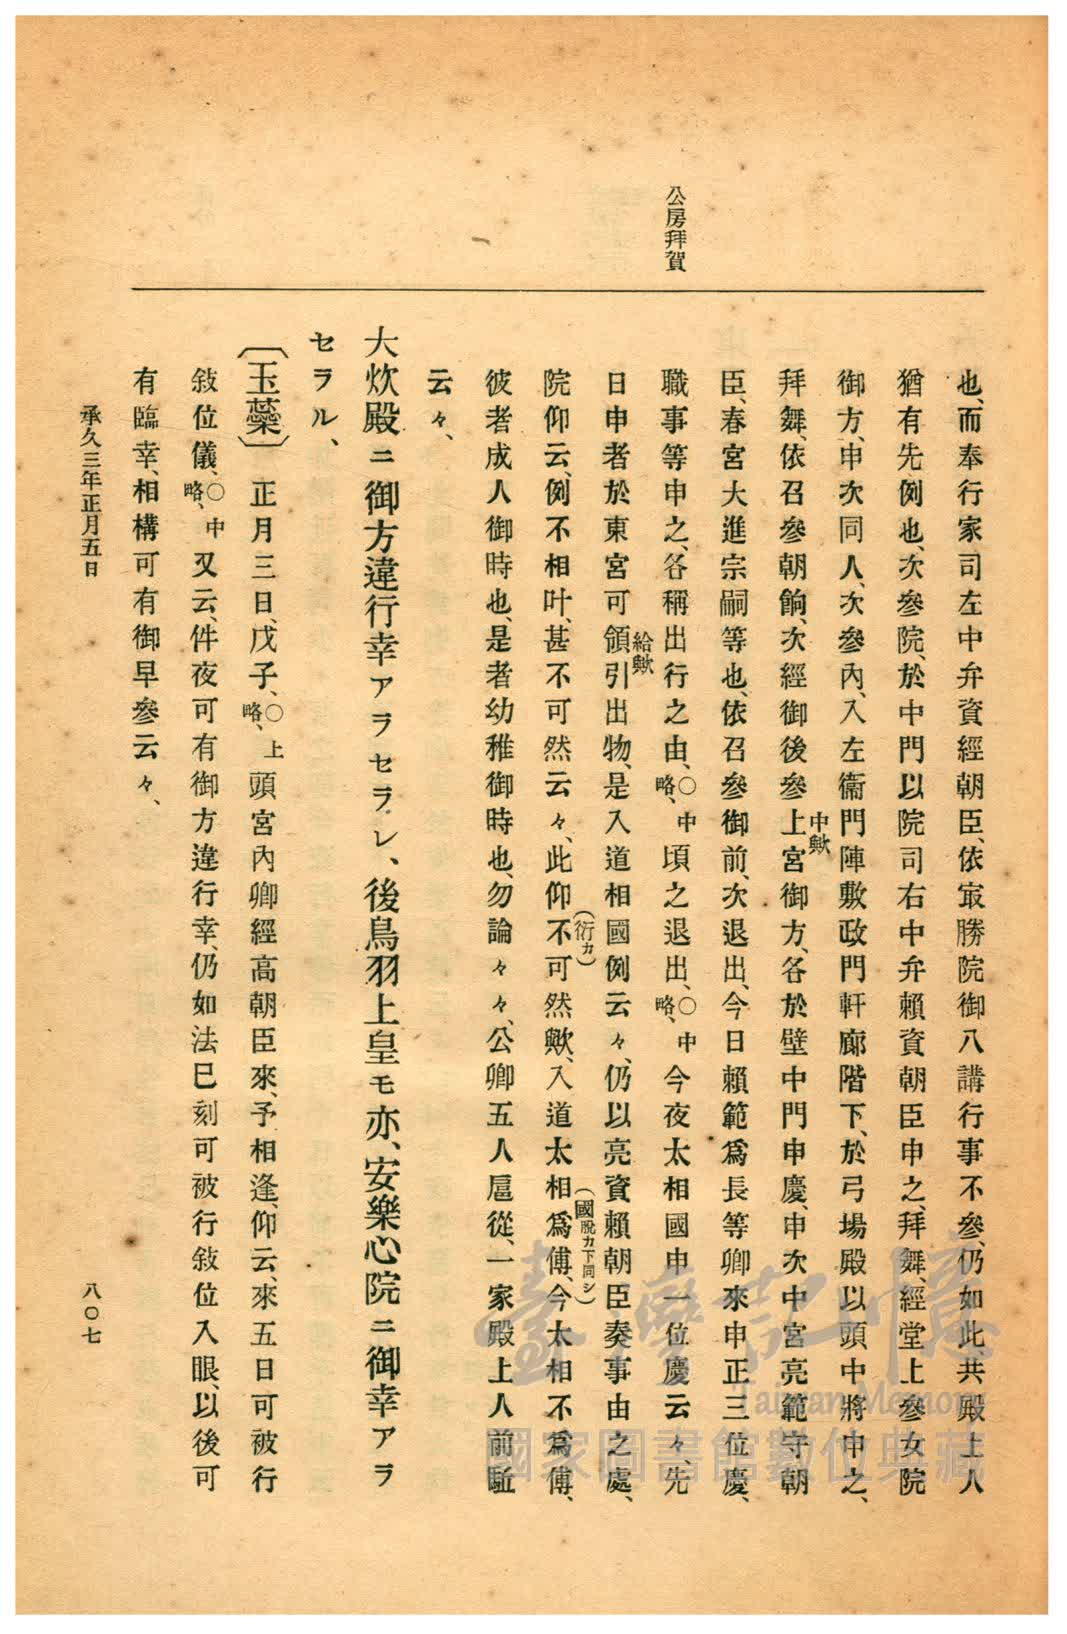 公房拜賀
也、而奉行家司左中弁資經朝臣、依㝡勝院御八講行事不參、仍如此、共殿上人
猶有先例也、次參院、於中門以院司右中弁賴資朝臣申之、拜舞、經堂上參女院
御方、申次同人、次參內、入左衞門陣敷政門軒廊階下、於弓場殿以頭中將申之、
拜舞、依召參朝餉、次經御後參上宮御方、各於壁中門申慶、申次中宮亮範守朝
中歟
臣、春宮大進宗嗣等也、依召參御前、次退出、今日賴範爲長等卿來申正三位慶、
職事等申之、各稱出行之由、○中略、頃之退出、○中略、今夜太相國申一位慶云々、先
日申者於東宮可領引出物、是入道相國例云々、仍以亮資賴朝臣奏事由之處、
給歟
院仰云、例不相叶、甚不可然云々、此仰不可然歟、入道太相爲傅、今太相不爲傅、
(衍カ)
(國脫カ下同シ)
彼者成人御時也、是者幼稚御時也、勿論々々、公卿五人扈從、一家殿上人前駈
云々、
大炊殿ニ御方違行幸アラセラレ、後鳥羽上皇モ亦、安樂心院ニ御幸アラ
セラル、
〔玉蘂〕正月三日、戊子、○上略、頭宮內卿經高朝臣來、予相逢、仰云、來五日可被行
敍位儀、○中略、又云、件夜可有御方違行幸、仍如法巳刻可被行敍位入眼、以後可
有臨幸、相構可有御早參云々、
承久三年正月五日
八〇七
臺灣記憶
Taiwan Memory
國家圖書館數位典藏